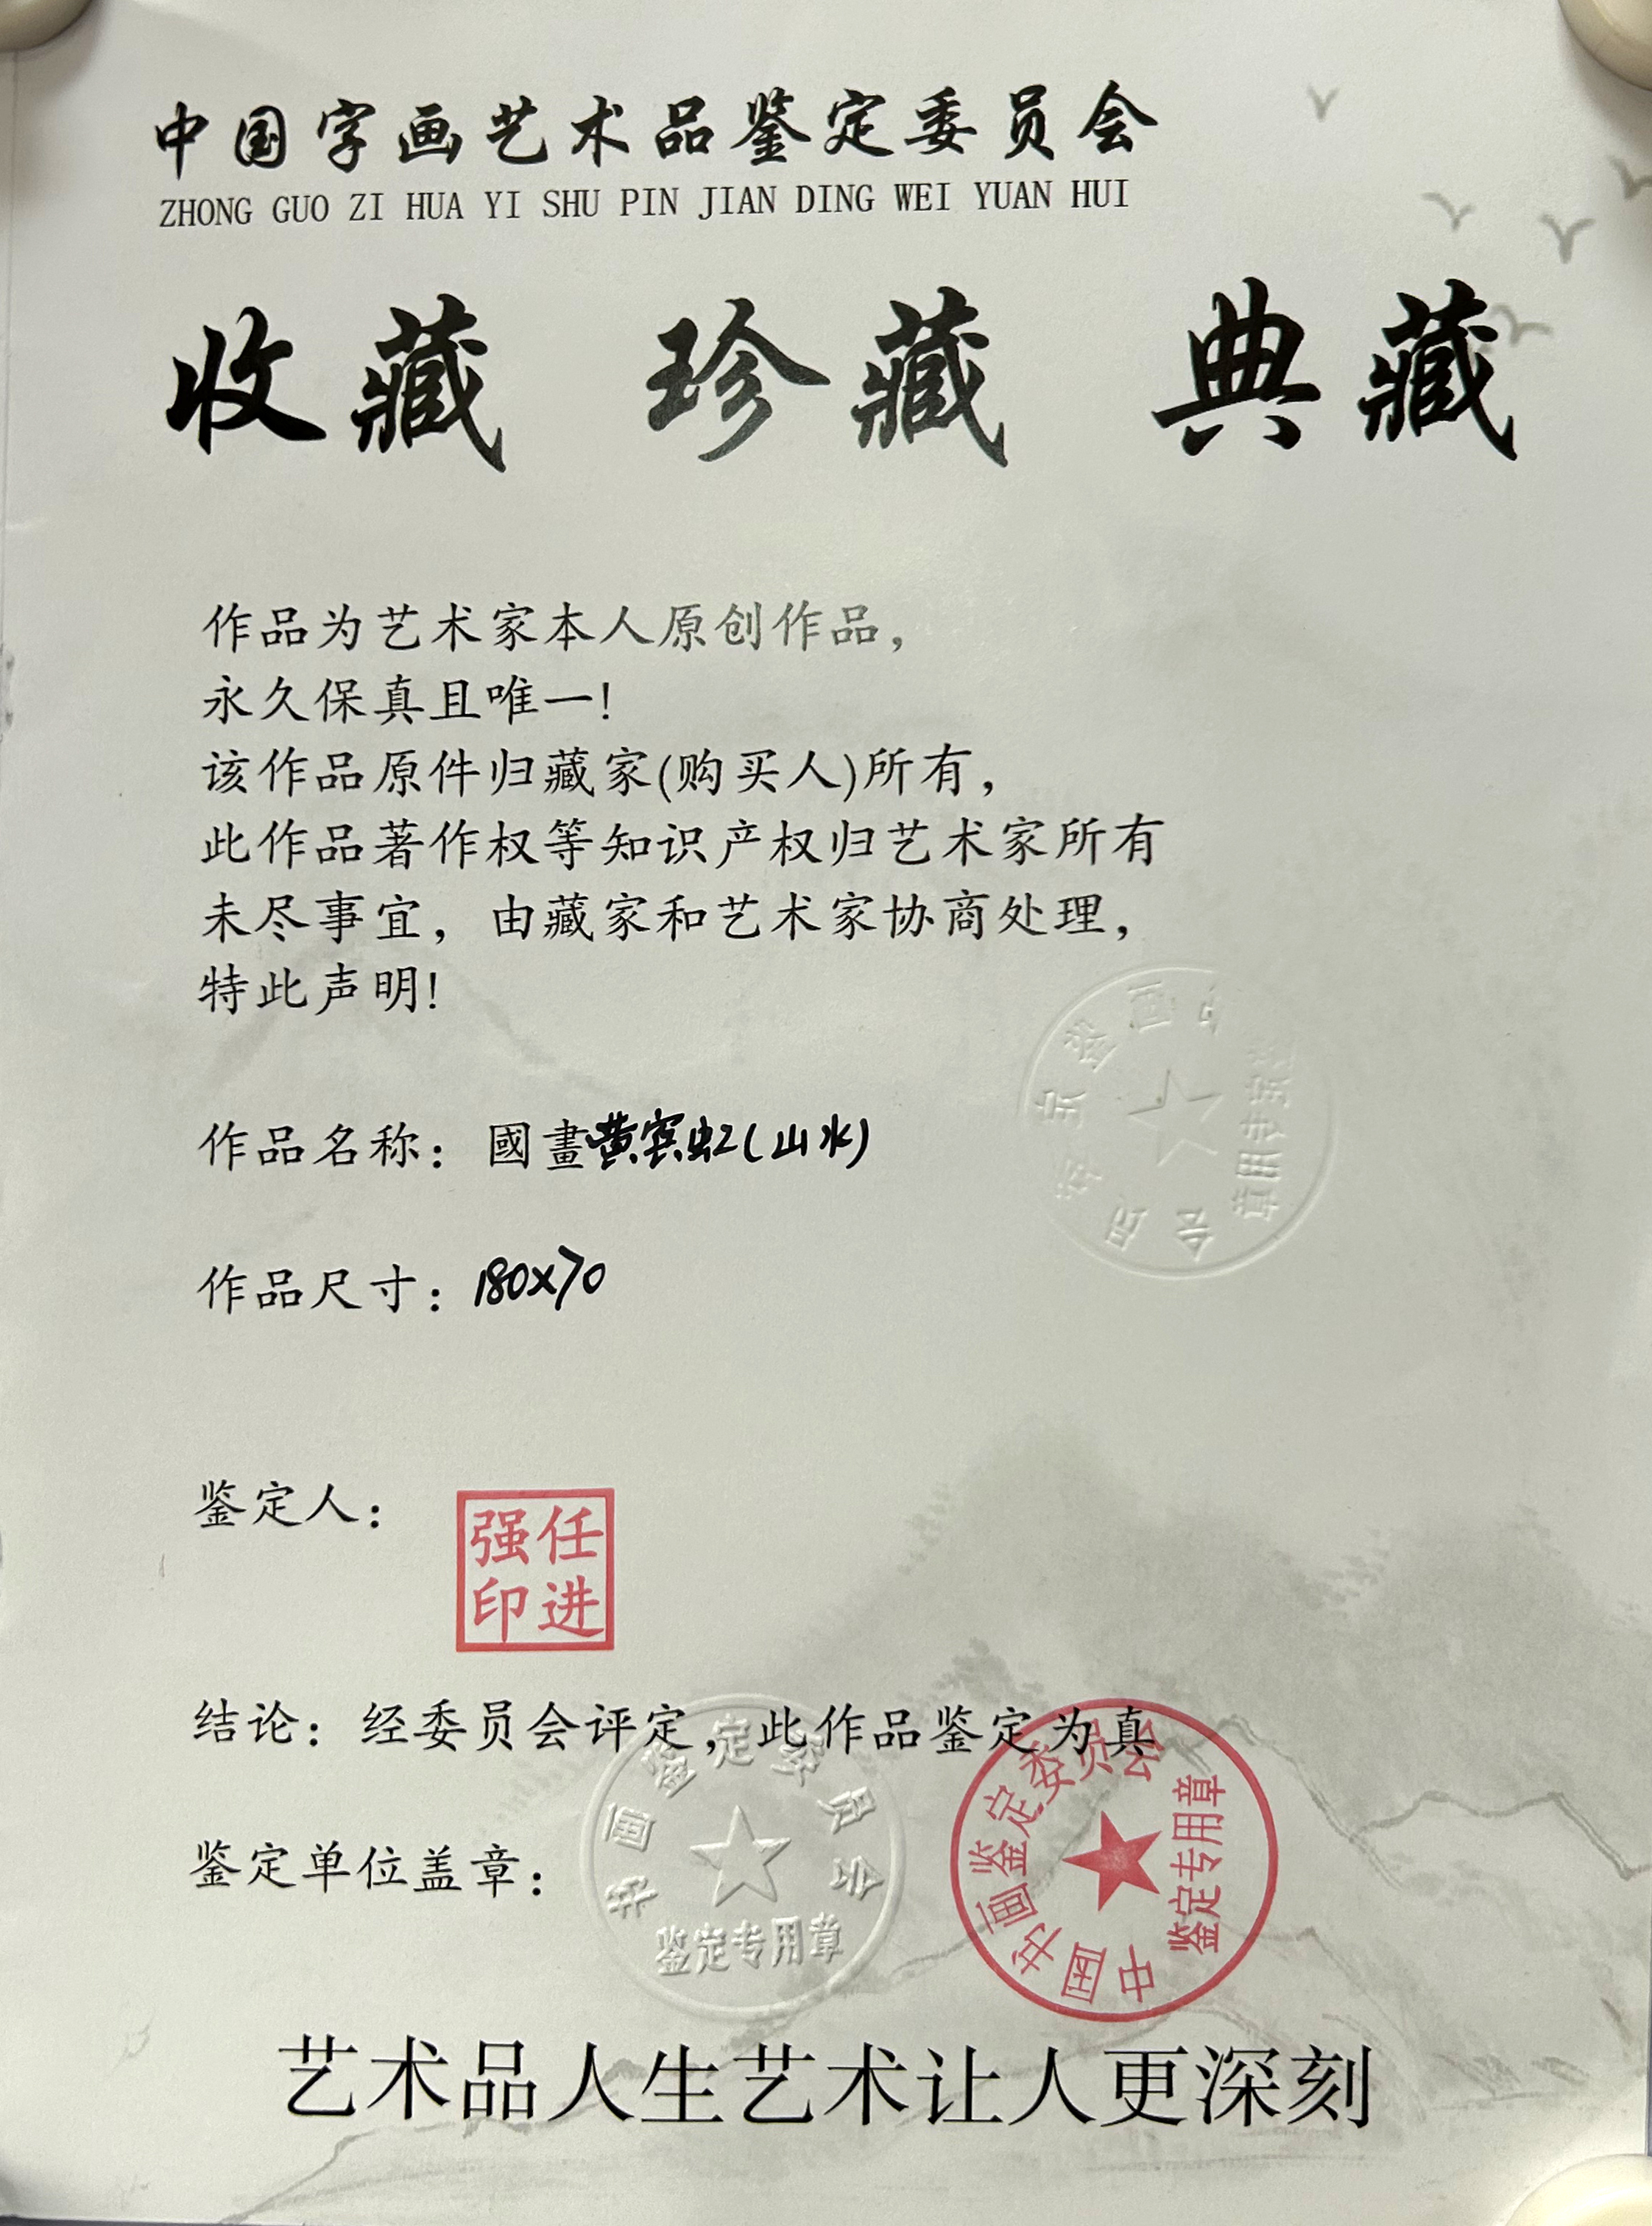 中国字画艺术品鉴定委员会
ZHONG GUO ZI HUA YI SHU PIN JIAN DING WEI YUAN HUI
收藏 珍藏 典藏
作品为艺术家本人原创作品，
永久保真且唯一!
该作品原件归藏家(购买人)所有，
此作品著作权等知识产权归艺术家所有
未尽事宜，由藏家和艺术家协商处理，
特此声明!
作品名称：國畫黄宾虹(山水)
作品尺寸：180x70
鉴定人：
任进强印
结论：经委员会评定，此作品鉴定为真
鉴定单位盖章：
书画鉴定委员会
鉴定专用章
中国书画鉴定委员会
鉴定专用章
艺术品人生艺术让人更深刻